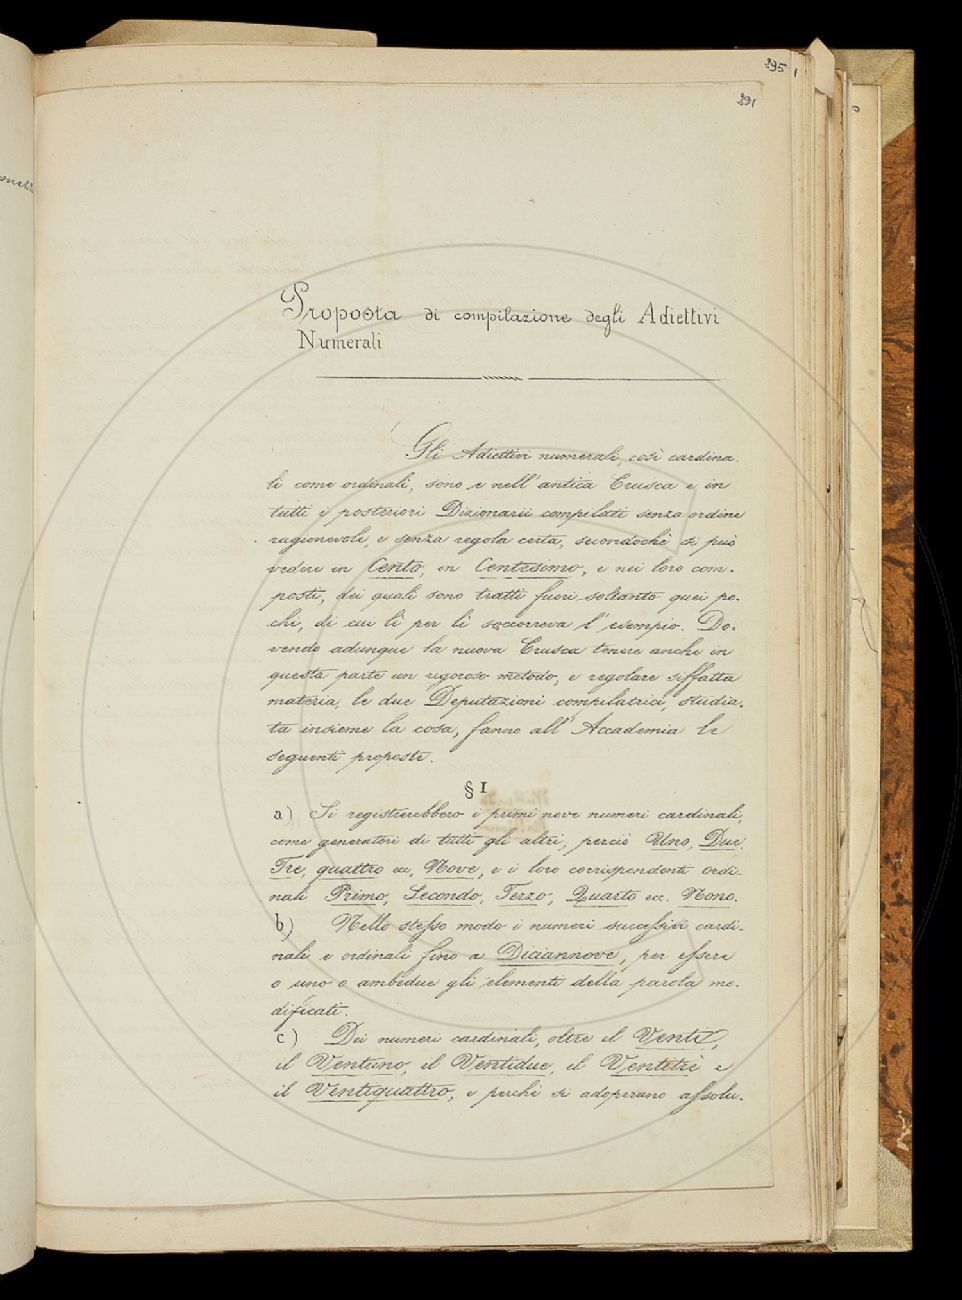 295
291
Proposta di compilazione degli Adiettivi
Numerali
Gli Adiettivi numerali, così cardina-
li come ordinali, sono e nell'antica Crusca e in
tutti i posteriori Dizionarii compilati senza ordine
ragionevole, e senza regola certa, secondochè si può
vedere in Cento, in Centesimo, e nei loro com-
posti, dei quali sono tratti fuori soltanto quei po-
chi, di cui lì per lì soccorreva l'esempio. Do-
vendo adunque la nuova Crusca tenere anche in
questa parte un rigoroso metodo, e regolare siffatta
materia, le due Deputazioni compilatrici, studia-
ta insieme la cosa, fanno all'Accademia le
seguenti proposte.
§ I
a) Si registrerebbero i primi nove numeri cardinali,
come generatori di tutti gli altri, perciò Uno, Due,
Tre, quattro ec, Nove, e i loro corrispondenti ordi-
nali Primo, Secondo, Terzo, Quarto ecc. Nono.
b) Nello stesso modo i numeri successivi cardi-
nali e ordinali fino a Diciannove, per essere
o uno o ambedue gli elementi della parola mo-
dificati.
c) Dei numeri cardinali, oltre il Venti,
il Ventuno, il Ventidue, il Ventitrè e
il Ventiquattro, e perchè si adoperano assolu-